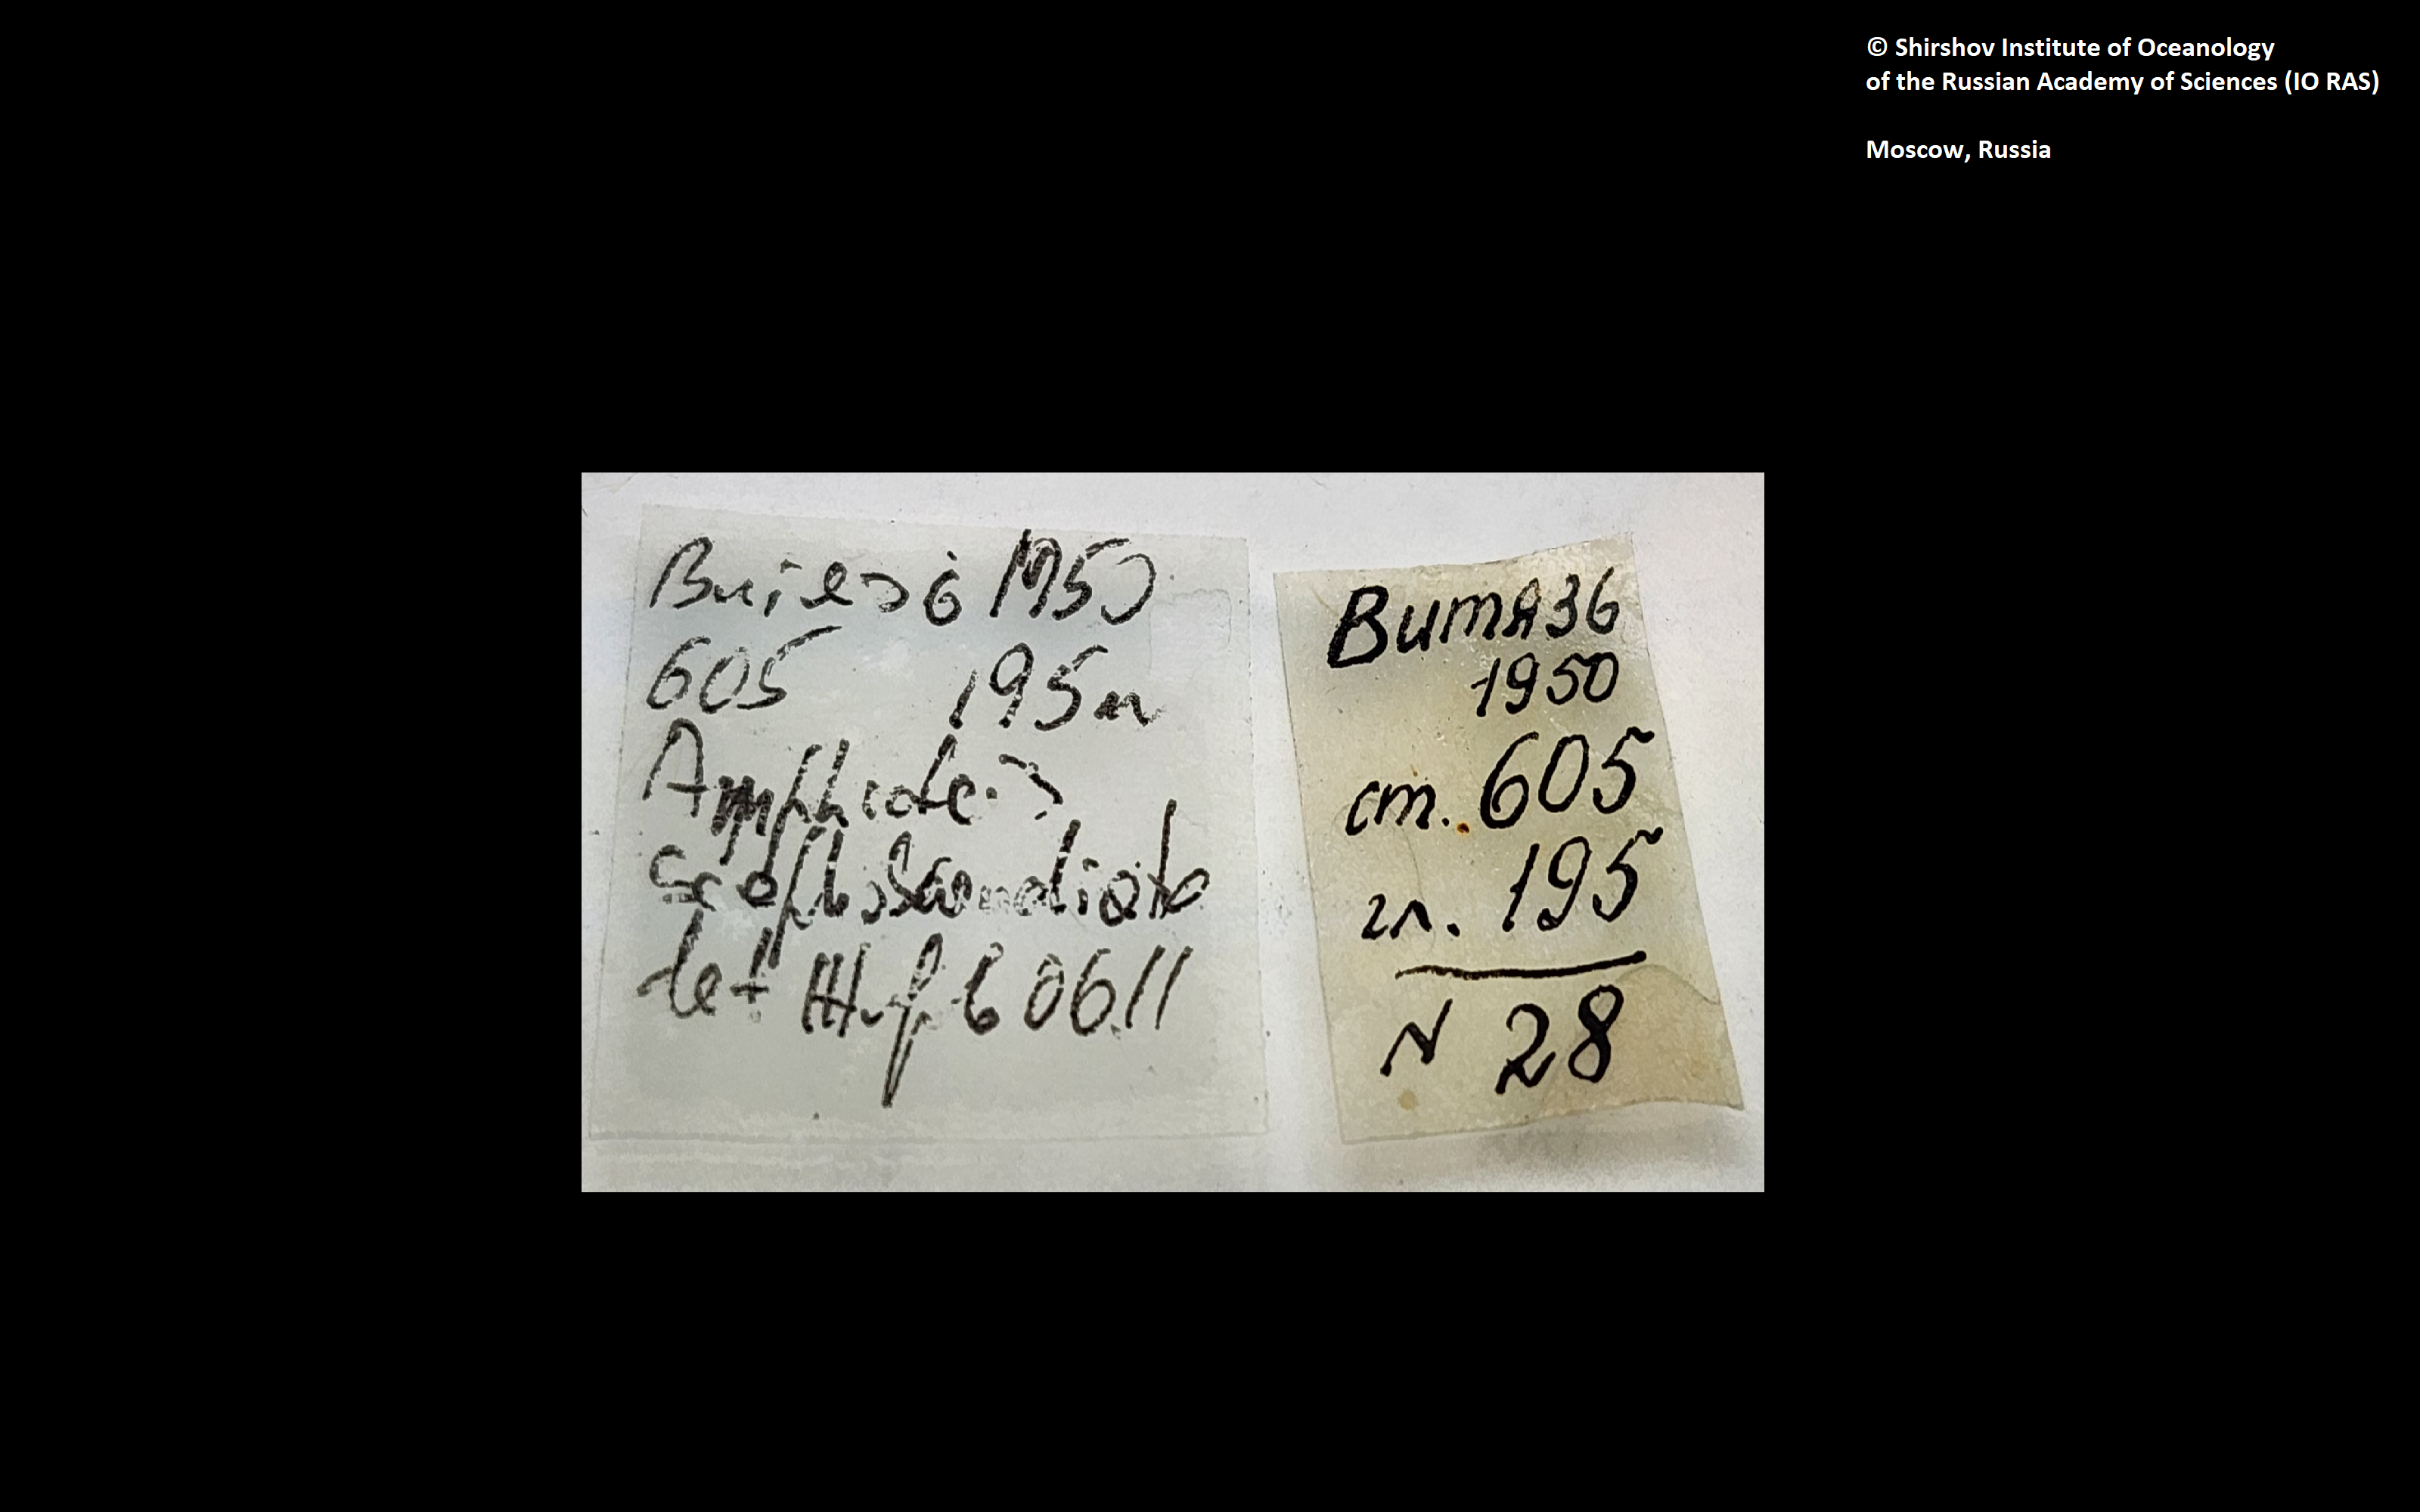 © Shirshov Institute of Oceanology
of the Russian Academy of Sciences (IO RAS)
Moscow, Russia
Витязь 1950
605 195м
Amphicteis
det 06.11
Витязь
1950
ст. 605
гл. 195
N 28